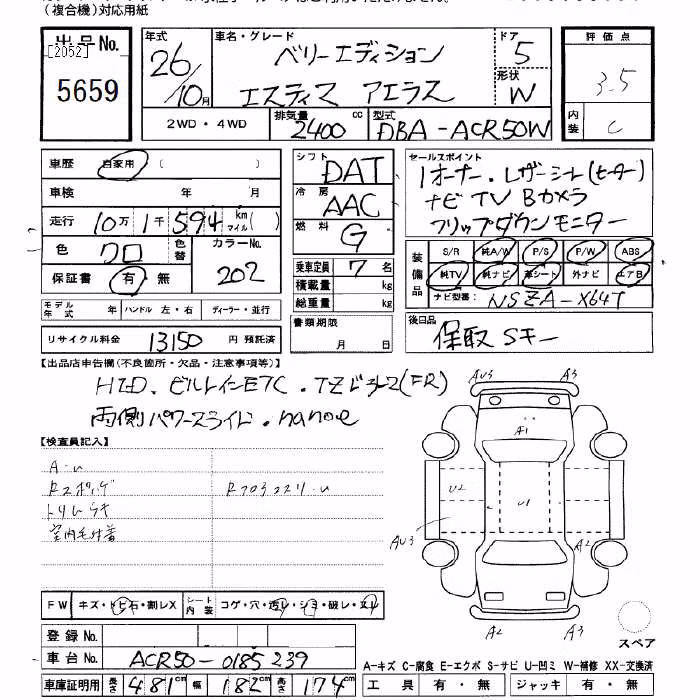 (複合機)対応用紙
出品No.
[2052]
5659
年式 26/10月
車名・グレード ベリーエディション
エスティマ アエラス
ドア 5
形状 W
評価点 3.5
内装 C
2WD・4WD 排気量 2400 cc 型式 DBA-ACR50W
車歴 自家用 ( )
車検 年 月
走行 10万1千594 km マイル ( )
色 クロ 色替 カラーNo. 202
保証書 有・無
モデル年式 年 ハンドル 左・右 ディーラー・並行
リサイクル料金 13150 円 預託済
シフト DAT
冷房 AAC
燃料 G
乗車定員 7 名
積載量 kg
総重量 kg
書類期限
月 日
セールスポイント
1オーナー.レザーシート(ヒーター)
ナビ TV Bカメラ
フリップダウンモニター
装備品 S/R 純A/W P/S P/W ABS
純TV 純ナビ 革シート 外ナビ エアB
ナビ型番: NSZA-X64T
後日品 保取 Sキー
【出品店申告欄(不良箇所・欠品・注意事項等)】
HID. ビルトインETC.
両側パワースライド.nanoe
【検査員記入】
A-U
トリムキズ
室内毛付着
AU3 A3
A1
U2 U1
AU3 A2
A2 A3
スペア
FW キズ・トビ石・割レX シート内装 コゲ・穴・透レ・シミ・破レ・スレ
登録No.
車台No. ACR50-0185239
車庫証明用 長さ 481cm 幅 182cm 高さ 174cm
A-キズ C-腐食 E-エクボ S-サビ U-凹ミ W-補修 XX-交換済
工具 有・無 ジャッキ 有・無